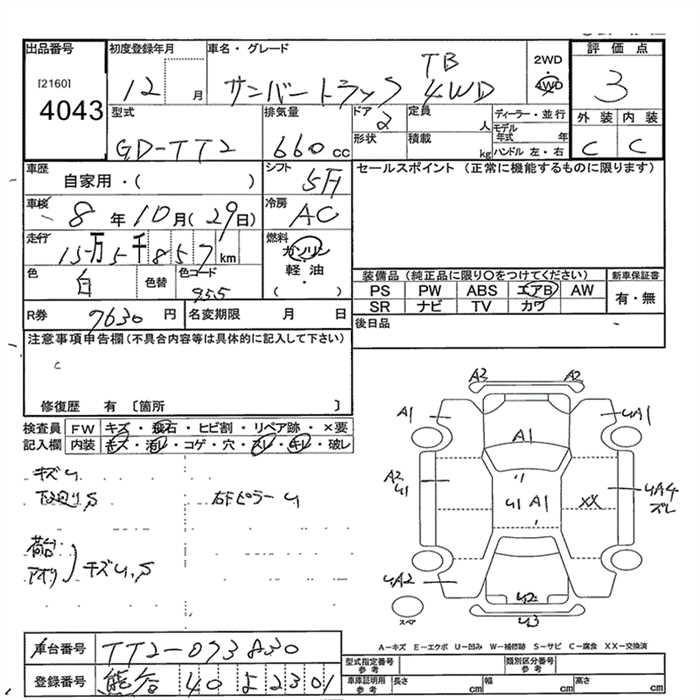 出品番号 [2160] 4043
初度登録年月 12 月
車名・グレード サンバートラック TB 4WD
2WD 4WD
評価点 3
型式 GD-TT2
排気量 660 cc
ドア 2
形状
定員 人
積載 kg
ディーラー・並行
モデル年式 年
ハンドル 左・右
外装 C
内装 C
車歴 自家用・( )
シフト 5F
セールスポイント (正常に機能するものに限ります)
車検 8 年 10 月 (29日)
冷房 AC
走行 15万5千857 km
燃料 ガソリン 軽油 ・ ( )
色 白
色替
色コード 955
装備品 (純品に限り○をつけてください)
新車保証書
PS PW ABS エアB AW
SR ナビ TV カワ
有・無
R券 7630 円
名変期限 月 日
後日品
注意事項申告欄 (不具合内容等は具体的に記入して下さい)
修復歴 有 [箇所 ]
検査員記入欄
FW キズ・飛石・ヒビ割・リペア跡・×要
内装 キズ・汚レ・コゲ・穴・スレ・キレ・破レ
キズU
下廻りS
右Fピラー U
荷台
アオリ
キズU,S
A3 A2
A1 UA1
A1
A2
U1
U1 A1
XX
UA4
ズレ
UA2
U2
U3
スペア
A-キズ E-エクボ U-凹み W-補修跡 S-サビ C-腐食 XX-交換済
車台番号 TT2-073830
登録番号 熊谷 40 よ 2301
型式指定番号 参考
類別区分番号 参考
車庫証明用 参考
長さ cm 幅 cm 高さ cm